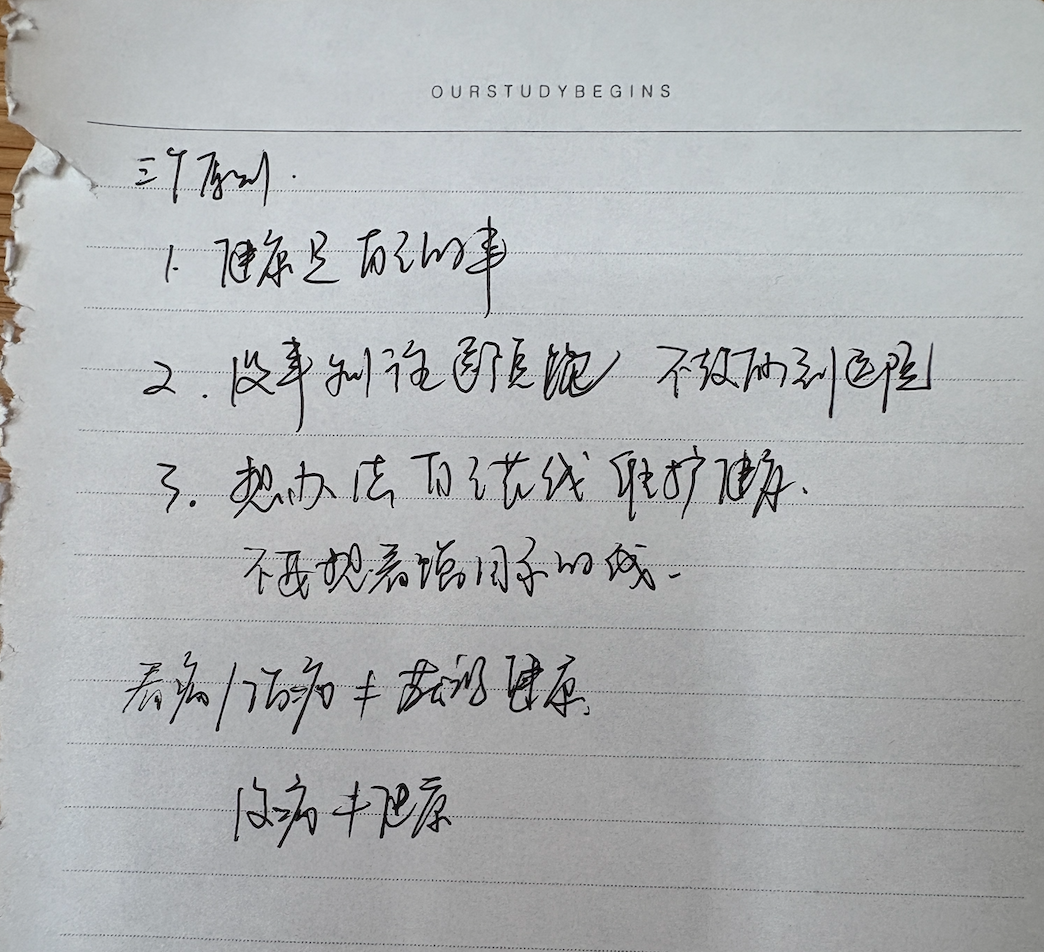 OURSTUDYBEGINS
三个原则.
1. 健康是自己的事
2. 没事别往医院跑 不到医院
3. 想办法自己花钱维护健康.
不要想着国家的钱.
看病/治病≠获得健康.
没病≠健康